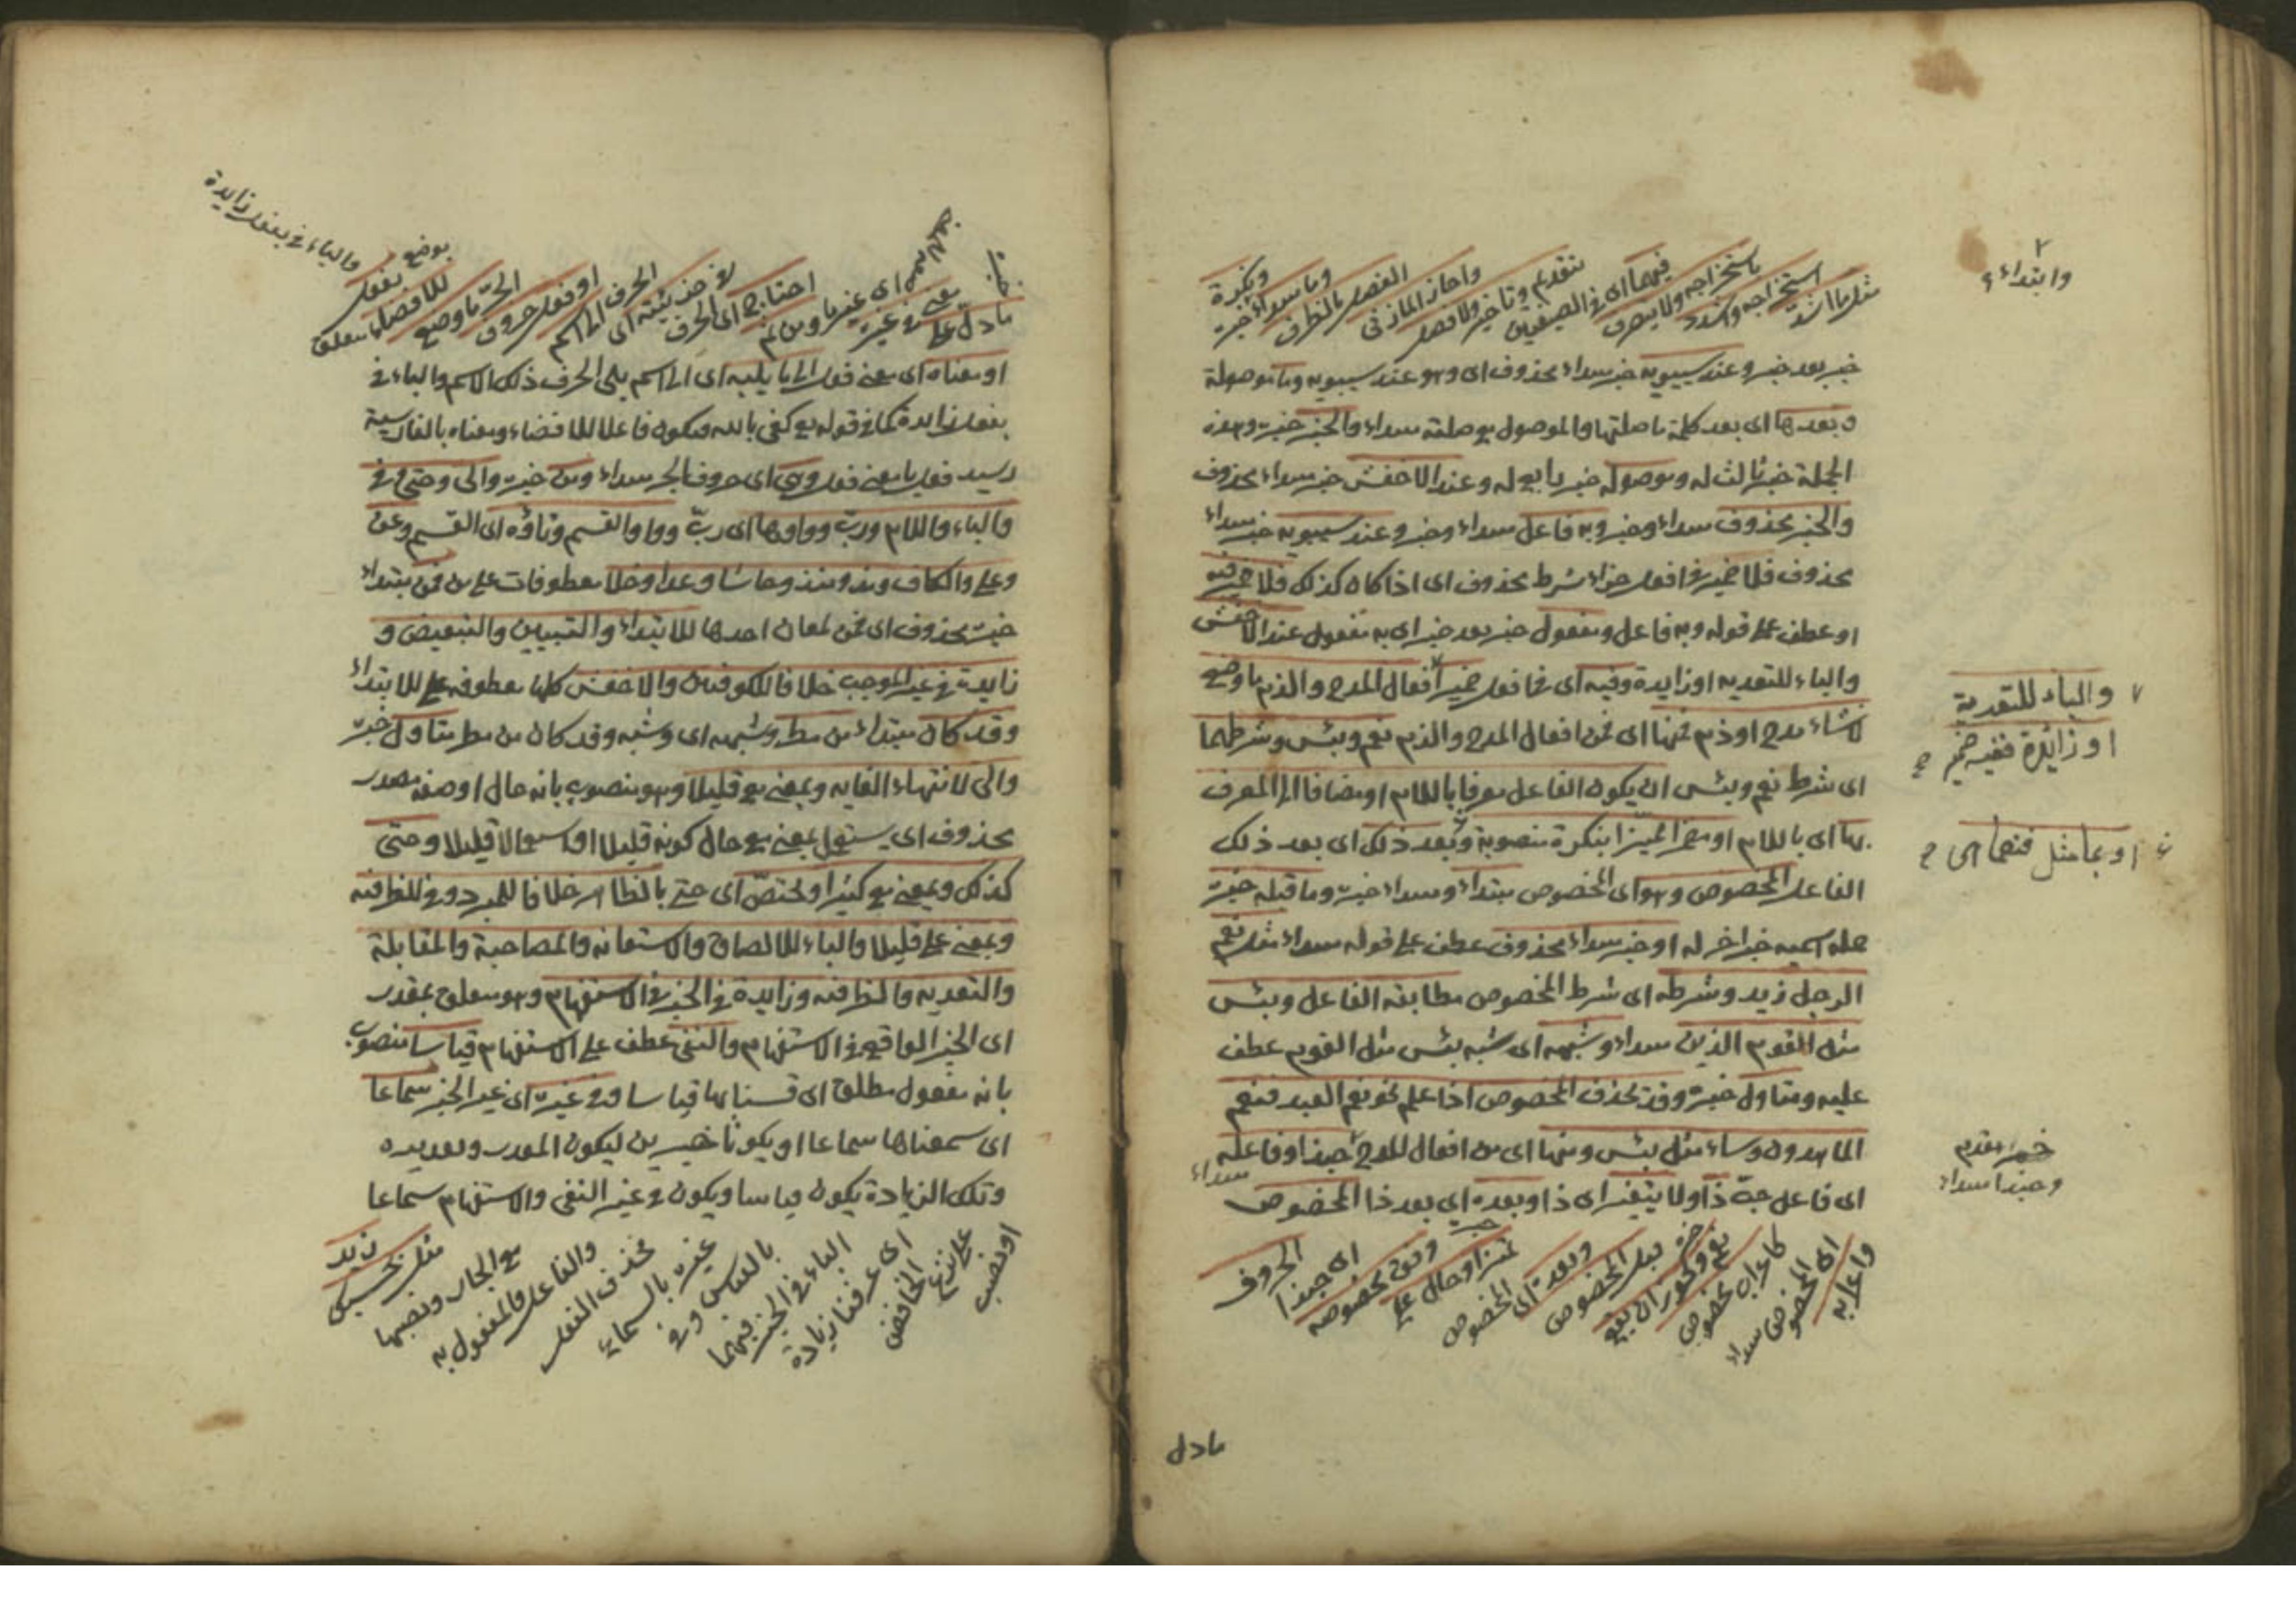 مثل ما اشد
استخراجه واشدد
باستخراجه ولا يتصرف
فيهما اى في الصيغتين
بتقديم وتأخير ولا فصل
واجاز المازنى
الفصل بالظرف
وما مبتداء خبره
ونكرة
خبر بعد خبر وعند سيبويه خبر مبتداء محذوف اى وهو عند سيبويه وما موصولة
وبعدها اى بعد كلمة ما صلتها والموصول مع صلته مبتداء والخبر خبره وهذه
الجملة خبر ثالث له وموصولة خبر رابع له وعند الاخفش خبر مبتداء محذوف
والخبر محذوف مبتداء وخبر وبه فاعل مبتداء وخبر وعند سيبويه خبر مبتداء
محذوف فلا ضمير في افعل جزاء شرط محذوف اى اذا كان كذلك فلا ضمير فيه
او عطف على قوله وبه فاعل ومفعول خبر بعد خبر اى به مفعول عند الاخفش
والباء للتعديه او زايدة وفيه اى في افعل ضمير افعال المدح والذم ما وضع
لانشاء مدح او ذم فمنها اى فمن افعال المدح والذم نعم وبئس وشرطهما
اى شرط نعم وبئس ان يكون الفاعل معرفا باللام او مضافا الى المعرف
بها اى باللام او مضمرا مميزا بنكرة منصوبة وبعد ذلك اى بعد ذلك
الفاعل المخصوص وهو اى المخصوص مبتداء ومبتداء خبره وما قبله خبره
جمله اسميه خبر اخر له او خبر مبتداء محذوف عطف على قوله مبتداء مثل نعم
الرجل زيد وشرطه اى شرط المخصوص مطابقة الفاعل وبئس
مثل القوم الذين مبتداء وشبهه اى شبه بئس مثل القوم عطف
عليه ومتاول خبره وقد يحذف المخصوص اذا علم نحو نعم العبد فنعم
الماهدون وساء مثل بئس ومنها اى من افعال المدح حبذا وفاعله
اى فاعل حبذا ذا ولا يتغير اى ذا وبعده اى بعد ذا المخصوص
مبتداء
واعرابه
اى المخصوص مبتداء
كاعراب مخصوص
نعم ويجوز ان يقع
قبل المخصوص
وبعده اى المخصوص
تمييز او حال على
وفق مخصوصه
اى حبذا
الحروف
مادل
وابتداء
والباء للتعدية
او زائدة ففيه ضمير
او بما مثل فنعما هى
خبر مقدم
وحبذا مبتداء
مادل على
معنى في غيره
اى غيرها ومن ثم
احتاج اى الحرف
في جزئيته اى
الحرف الى اسم
او فعل حروف
الجر ما وضع
للافضاء متعلق
بوضع بفعل
والباء في بفعل زايدة
او معناه اى معنى فعل الى ما يليه اى الى اسم يلى الحرف ذلك الاسم والباء في
بفعل زايدة كما في قوله مع كفى بالله فيكون فاعلا للافضاء ومعناه بالفارسية
رسيد فعل يا معنى فعل وهى اى حروف الجر مبتداء ومن خبره والى وحتى وفي
والباء واللام ورب وواوها اى رب وواو القسم وتاؤه اى القسم وعن
وعلى والكاف ومذ ومنذ وحاشا وعدا وخلا معطوفات على من فمن مبتداء
خبره محذوف اى فمن لمعان احدها للابتداء والتبيين والتبعيض و
زايدة في غير الموجب خلافا للكوفيين والاخفش كلها معطوفه على للابتداء
وقد كان مبتداء من مطر وشبهه اى وشبه وقد كان من مطر متاول خبره
والى لانتهاء الغايه وبمعنى مع قليلا وهو منصوب بانه حال او صفه مصدر
محذوف اى يستعمل بمعنى مع حال كونه قليلا او استعمالا قليلا وحتى
كذلك وبمعنى مع كثيرا ويختص اى حتى بالظاهر خلافا للمبرد وفي للظرفيه
وبمعنى على قليلا والباء للالصاق والاستعانه والمصاحبة والمقابلة
والتعديه والظرفيه وزايدة في الخبر في الاستفهام وهو متعلق بمقدر
اى الخبر الواقع في الاستفهام والنفى عطف على الاستفهام قياسا منصوب
بانه مفعول مطلق اى قسناها قياسا وفي غيره اى غير الخبر سماعا
اى سمعناها سماعا او يكونا خبرين ليكون المقدر وتقديره
وتلك الزيادة يكون قياسا ويكون في غير النفى والاستفهام سماعا
او نصب
على نزع الخافض
اى عرفنا زيادة
الباء في الخبر فيهما
بالقياس وفي
غيره بالسماع
فحذف الفعل
والفاعل والمفعول به
مع الجار ونصبها
مثل بحسبك
زيد